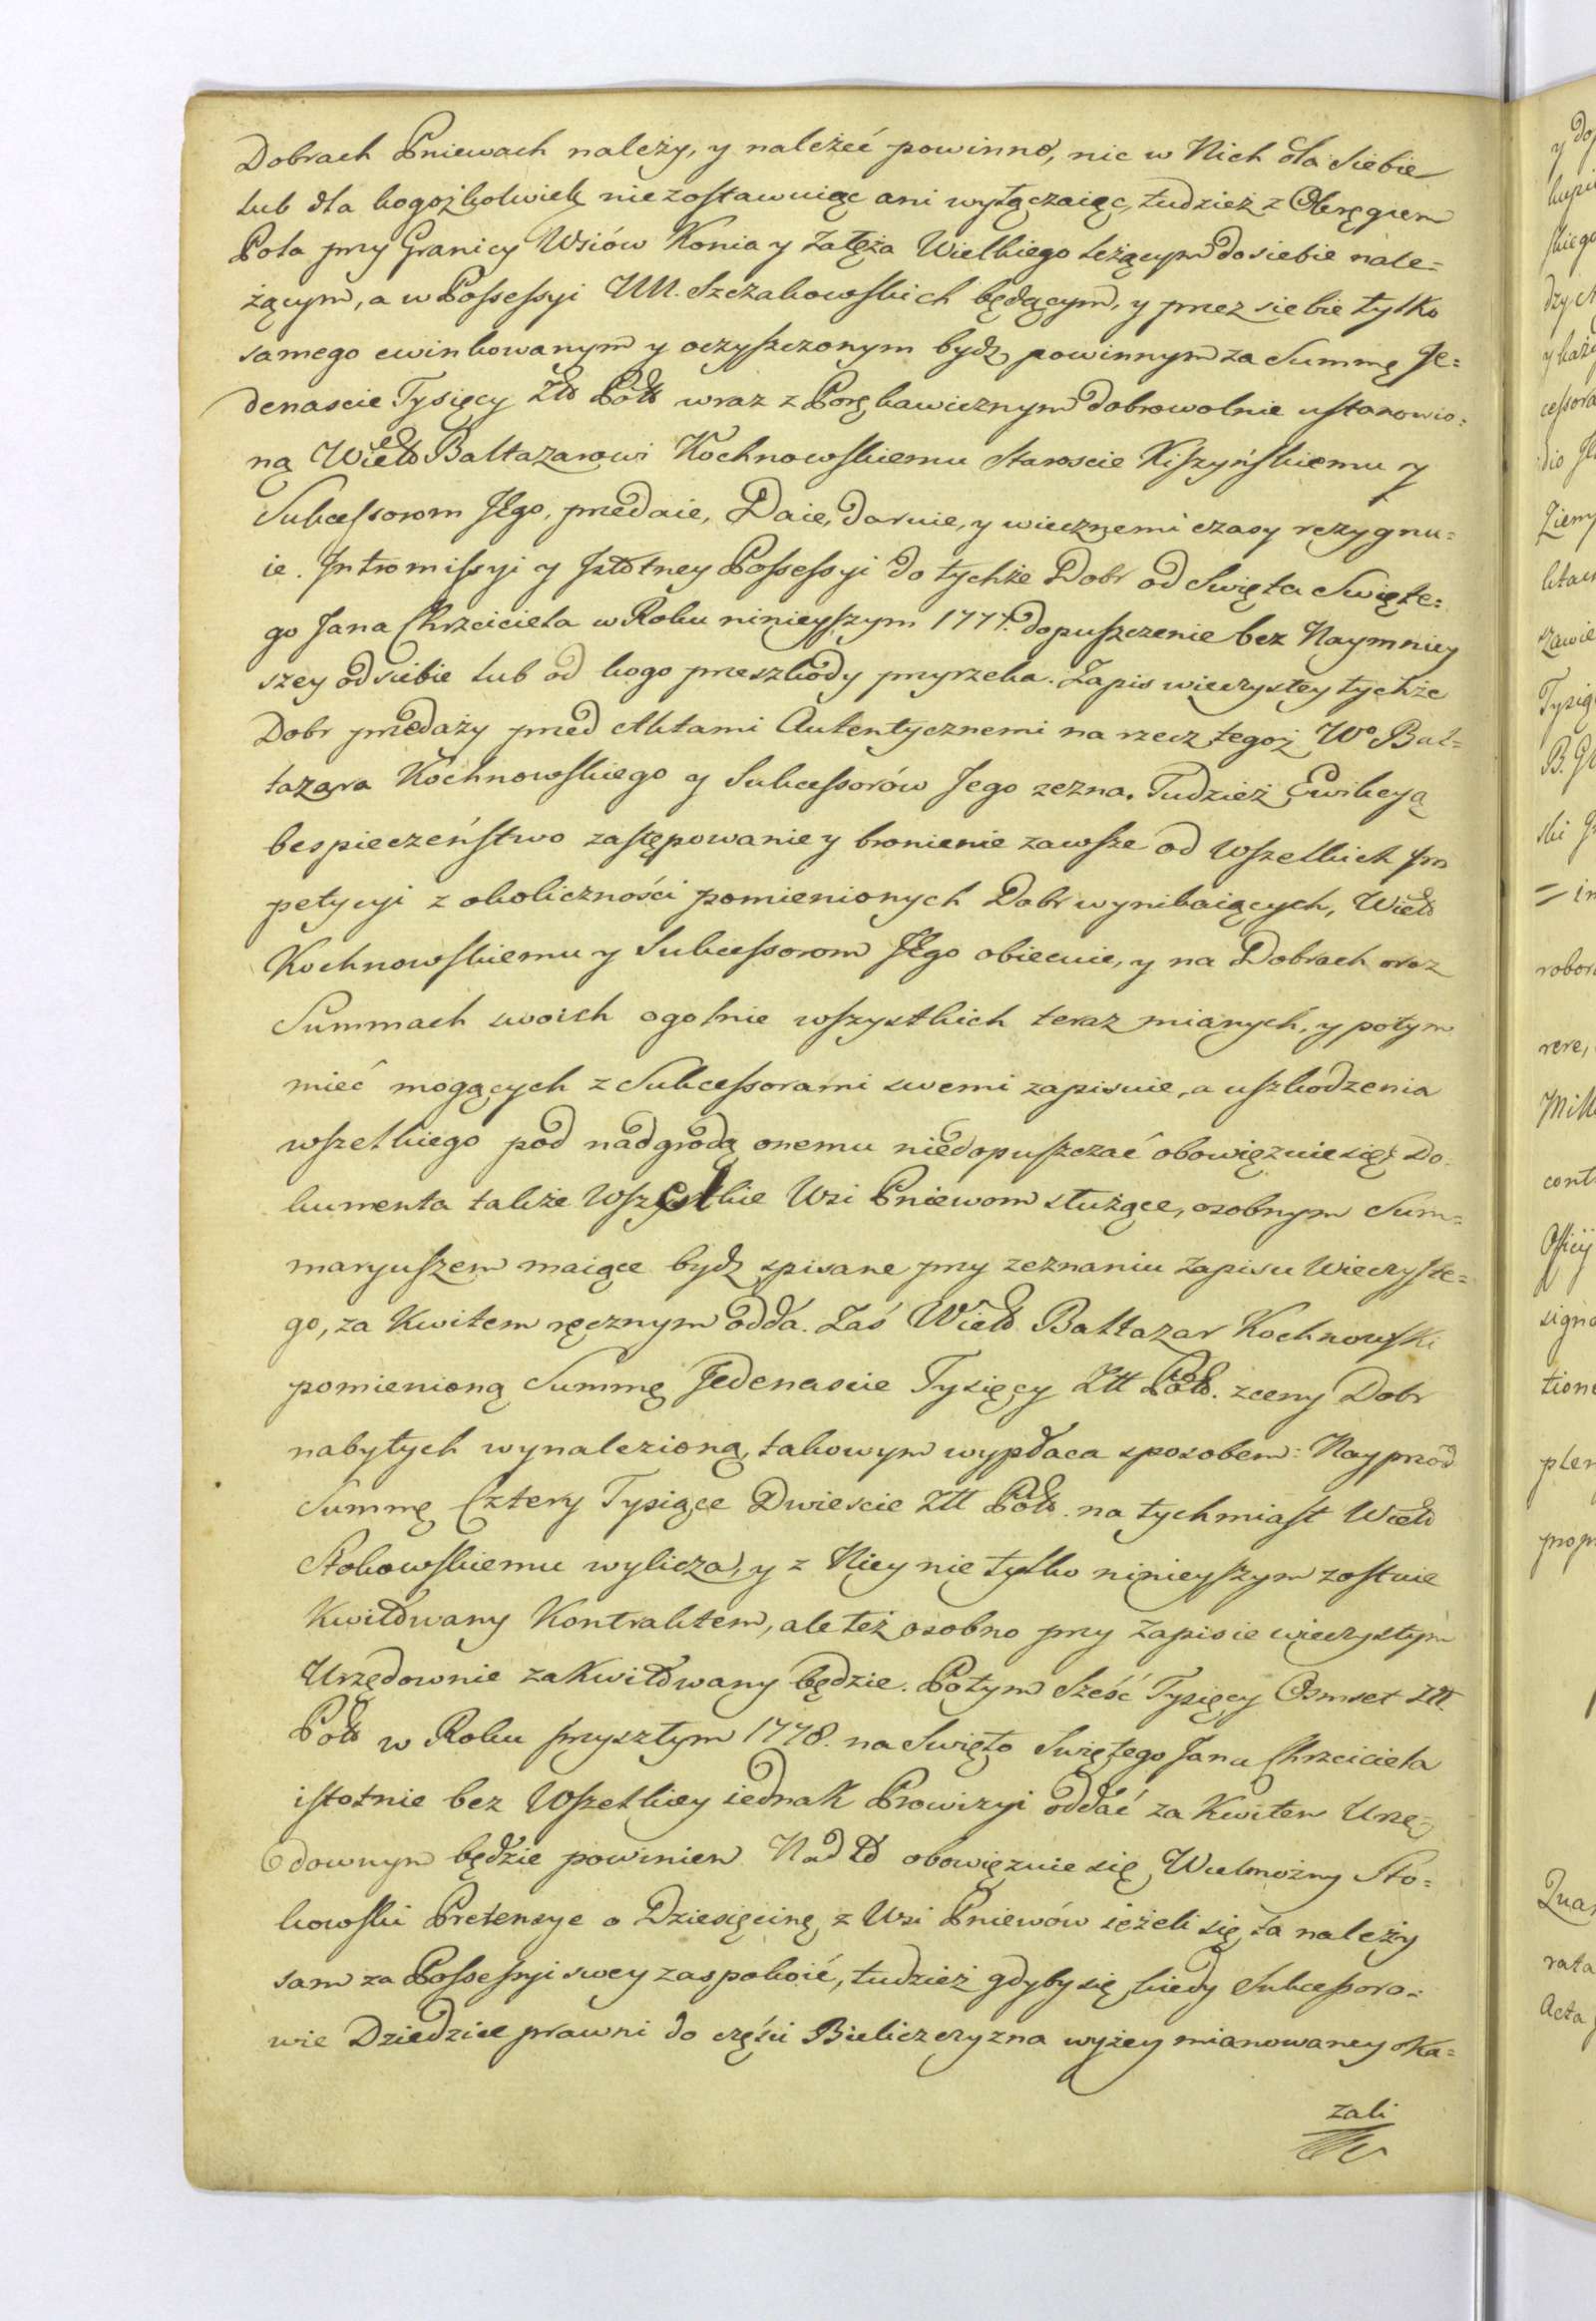 Dobrach Pniewach należy, y należéć powinno, nic w Nich dla siebie
lub dla kogożkolwiek niezostawuiąc ani wyłączaiąc, tudzież z Okręgiem
Pola przy Granicy Wsiów Konia y Załęża Wielkiego leżącym do siebie nale=
żącym, a w Possessyi UUU. Szczakowskich będącym, y przez siebie tylko
samego ewinkowanym y oczyszczonym bydź powinnym za Summę Je=
denascie Tysięcy Złt Pols wraz z Porękawicznym dobrowolnie ustanowio=
ną Wiel. Baltazarowi Kochnowskiemu Staroscie Kiszyńskiemu y
Sukcessorom JEgo, przedaie, Daie, daruie, y wiecznemi czasy rezygnu=
ie. Intromissyi y Istotney Possessyi do tychże Dobr od Swięta Swięte=
go Jana Chrzciciela w Roku ninieyszym 1777. dopuszczenie bez Naymniey
szey od siebie lub od kogo przeszkody przyrzeka. Zapis wieczystey tychże
Dobr przedaży przed Aktami Autentycznemi na rzecz tegoż Wo Bal=
tazara Kochnowskiego y Sukcessorów Jego zezna. Tudzież Ewikcyą
bespieczeństwo zastępowanie y bronienie zawsze od Wszelkich Im
petycyi z okoliczności pomienionych Dobr wynikaiących, Wiel
Kochnowskiemu y Sukcessorom JEgo obiecuie, y na Dobrach oraz
Summach swoich ogolnie wszystkich teraz mianych, y potym
mieć mogących z Sukcessorami swemi zapisuie, a uszkodzenia
wszelkiego pod nadgrodą onemu niedopuszczać obowięzuie się; Do=
kumenta także Wszystkie Wsi Pniewom służące, osobnym Sum=
maryuszem maiące bydź spisane przy zeznaniu Zapisu Wieczyste=
go, za Kwitem ręcznym odda. Zaś Wiel. Baltazar Kochnowski
pomienioną Summę Jedenascie Tysięcy Złt Pols. z ceny Dobr
nabytych wynalezioną, takowym wypłaca sposobem: Nayprzód
Summę Cztery Tysiące Dwiescie Złt Pols. na tychmiast Wiel
Stokowskiemu wylicza, y z Niey nie tylko ninieyszym zostaie
Kwitowany Kontraktem, ale też osobno przy Zapisie wieczystym
Urzędownie zaKwitowany będzie. Potym Sześć Tysięcy Osmset Złt
Pols w Roku przyszłym 1778. na Swięto Swiętego Jana Chrzciciela
istotnie bez Wszelkiey iednak Prowizyi oddać za Kwitem Urzę=
downym będzie powinien. Nad to obowięzuie się Wielmożny Sto=
kowski Pretensye o Dziesięcinę z Wsi Pniewów ieżeli się ta należy
sam za Possessyi swey zaspokoić, tudzież gdyby się kiedy Sukcessoro=
wie Dziedzice prawni do części Bieliczczyzna wyżey mianowaney oka=
zali